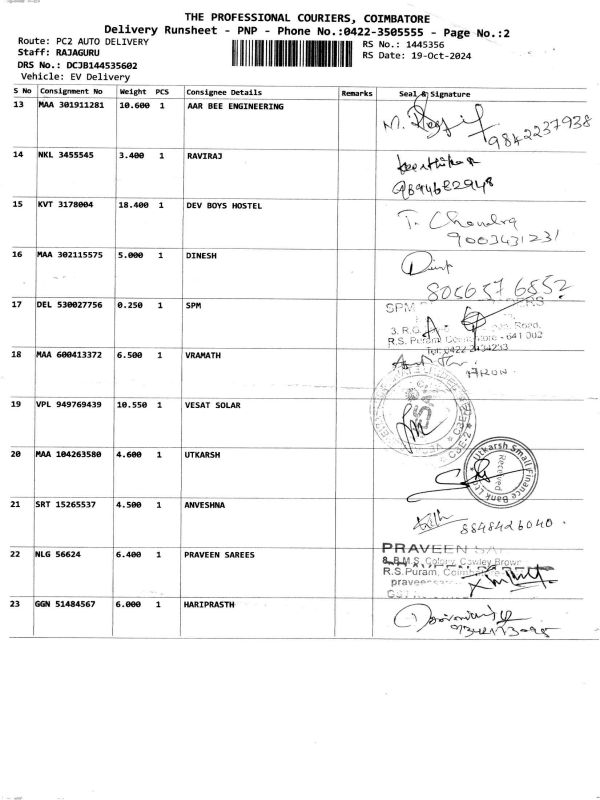 THE PROFESSIONAL COURIERS, COIMBATORE
Delivery Runsheet - PNP - Phone No.:0422-3505555 - Page No.:2
Route: PC2 AUTO DELIVERY
RS No.: 1445356
Staff: RAJAGURU
RS Date: 19-Oct-2024
DRS No.: DCJB144535602
Vehicle: EV Delivery
S No Consignment No Weight PCS Consignee Details Remarks Seal & Signature
13 MAA 301911281 10.600 1 AAR BEE ENGINEERING
9842237938
14 NKL 3455545 3.400 1 RAVIRAJ
15 KVT 3178004 18.400 1 DEV BOYS HOSTEL T. Chandra
9003431231
16 MAA 302115575 5.000 1 DINESH
8056576852
17 DEL 530027756 0.250 1 SPM SPM
R.S. Puram, - 641 002
Tel: 0422 2434233
18 MAA 600413372 6.500 1 VRAMATH
19 VPL 949769439 10.550 1 VESAT SOLAR
20 MAA 104263580 4.600 1 UTKARSH Utkarsh Small Finance Bank
Received
21 SRT 15265537 4.500 1 ANVESHNA
8848426040
22 NLG 56624 6.400 1 PRAVEEN SAREES PRAVEEN
8, B.M.S. Colony, Cowley Brown
R.S.Puram,
23 GGN 51484567 6.000 1 HARIPRASTH